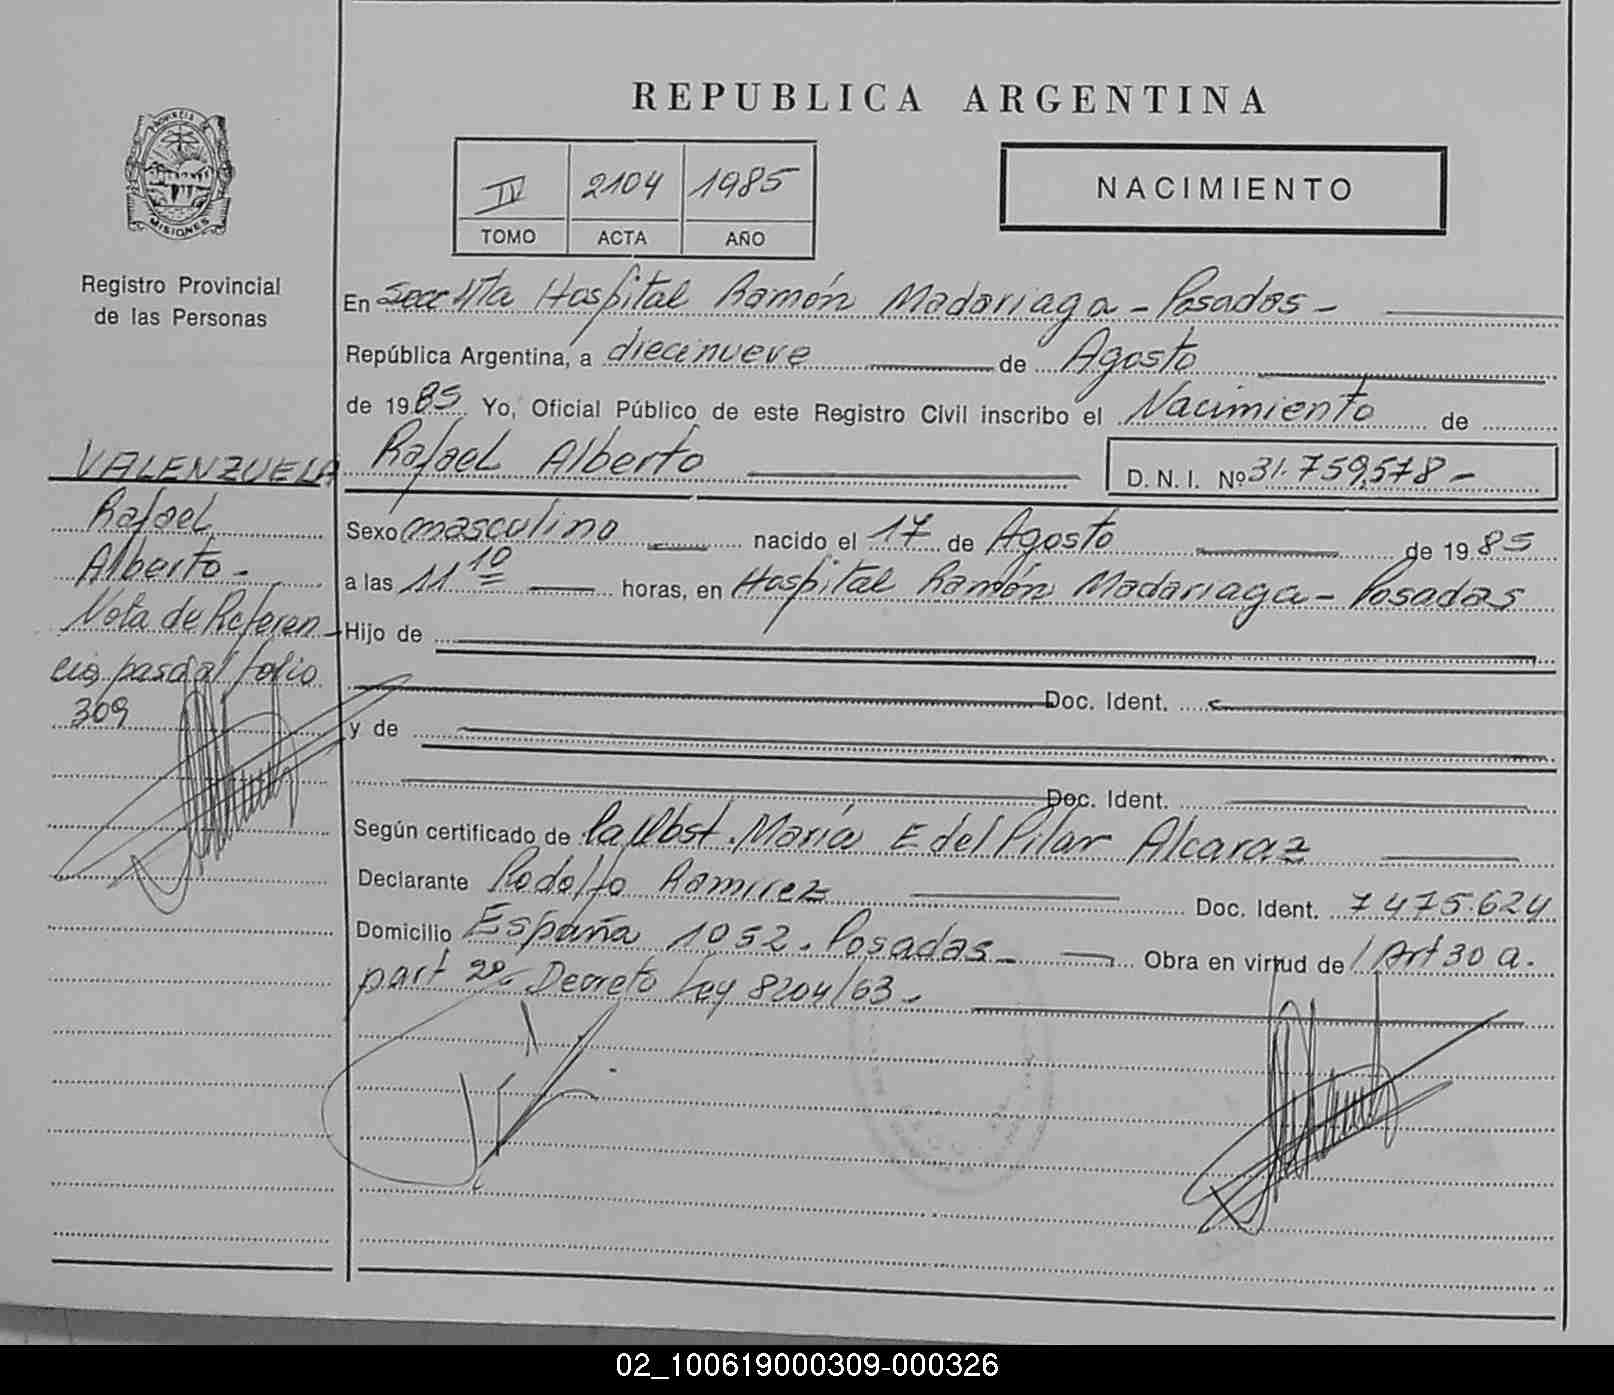 REPUBLICA ARGENTINA
PROVINCIA DE
MISIONES
Registro Provincial
de las Personas
IV 2104 1985
TOMO ACTA AÑO
NACIMIENTO
En Secc 4Ta Hospital Ramón Madariaga - Posadas -
República Argentina, a diecinueve de Agosto
de 1985 Yo, Oficial Público de este Registro Civil inscribo el Nacimiento de
Rafael Alberto D. N. I. Nº 31.759.578 -
Sexo masculino nacido el 17 de Agosto de 1985
a las 11 10 horas, en Hospital Ramón Madariaga - Posadas
Hijo de
Doc. Ident.
y de
Doc. Ident.
Según certificado de la Obst. María E del Pilar Alcaraz
Declarante Rodolfo Ramirez Doc. Ident. 7475.624
Domicilio España 1052. Posadas - Obra en virtud de Art 30 a.
part 2º Decreto Ley 8204/63 -
VALENZUELA
Rafael
Alberto -
Nota de Referen-
cia pasa al folio
309
02_100619000309-000326